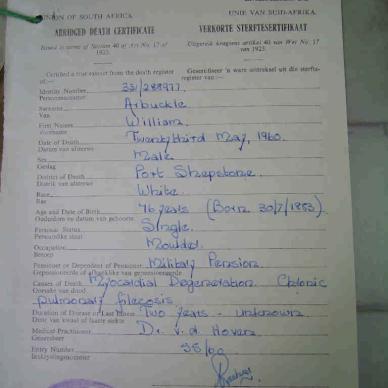 UNION OF SOUTH AFRICA. UNIE VAN SUID-AFRIKA.
ABRIDGED DEATH CERTIFICATE VERKORTE STERFTESERTIFIKAAT
Issued in terms of Section 40 of Act No. 17 of 1923. Uitgereik kragtens artikel 40 van Wet No. 17 van 1923.
Certified a true extract from the death register of:— Gesertifiseer 'n ware uittreksel uit die sterfteregister van:—
Identity Number
Persoonsnommer
Surname Arbuckle
Van
First Names William
Voorname
Date of Death Twenty third May, 1960.
Datum van afsterwe
Sex Male
Geslag
District of Death Port Shepstone.
Distrik van afsterwe
Race White
Ras
Age and Date of Birth 76 years (Born 30/7/1883).
Ouderdom en datum van geboorte
Personal Status Single.
Persoonlike staat
Occupation Moulder.
Beroep
Pensioner or Dependent of Pensioner Military Pension.
Gepensioeneerde of afhanklike van gepensioeneerde
Causes of Death Myocardial Degeneration. Chronic
Oorsake van dood pulmonary
Duration of Disease or Last Illness Two years - unknown.
Duur van kwaal of laaste siekte
Medical Practitioner Dr. v. d. Hoven
Geneesheer
Entry Number
Inskrywingsnommer